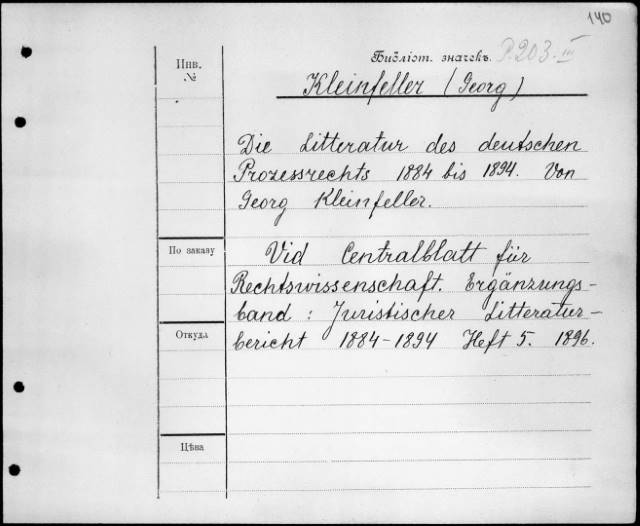 140
Инв.
№
Библіот. значекъ. P.203.III
Kleinfeller (Georg)
Die Litteratur des deutschen
Prozessrechts 1884 bis 1894. Von
Georg Kleinfeller.
По заказу
Vid Centralblatt für
Rechtswissenschaft. Ergänzungs-
band: Juristischer Litteratur-
Откуда
bericht 1884-1894 Heft 5. 1896.
Цѣна